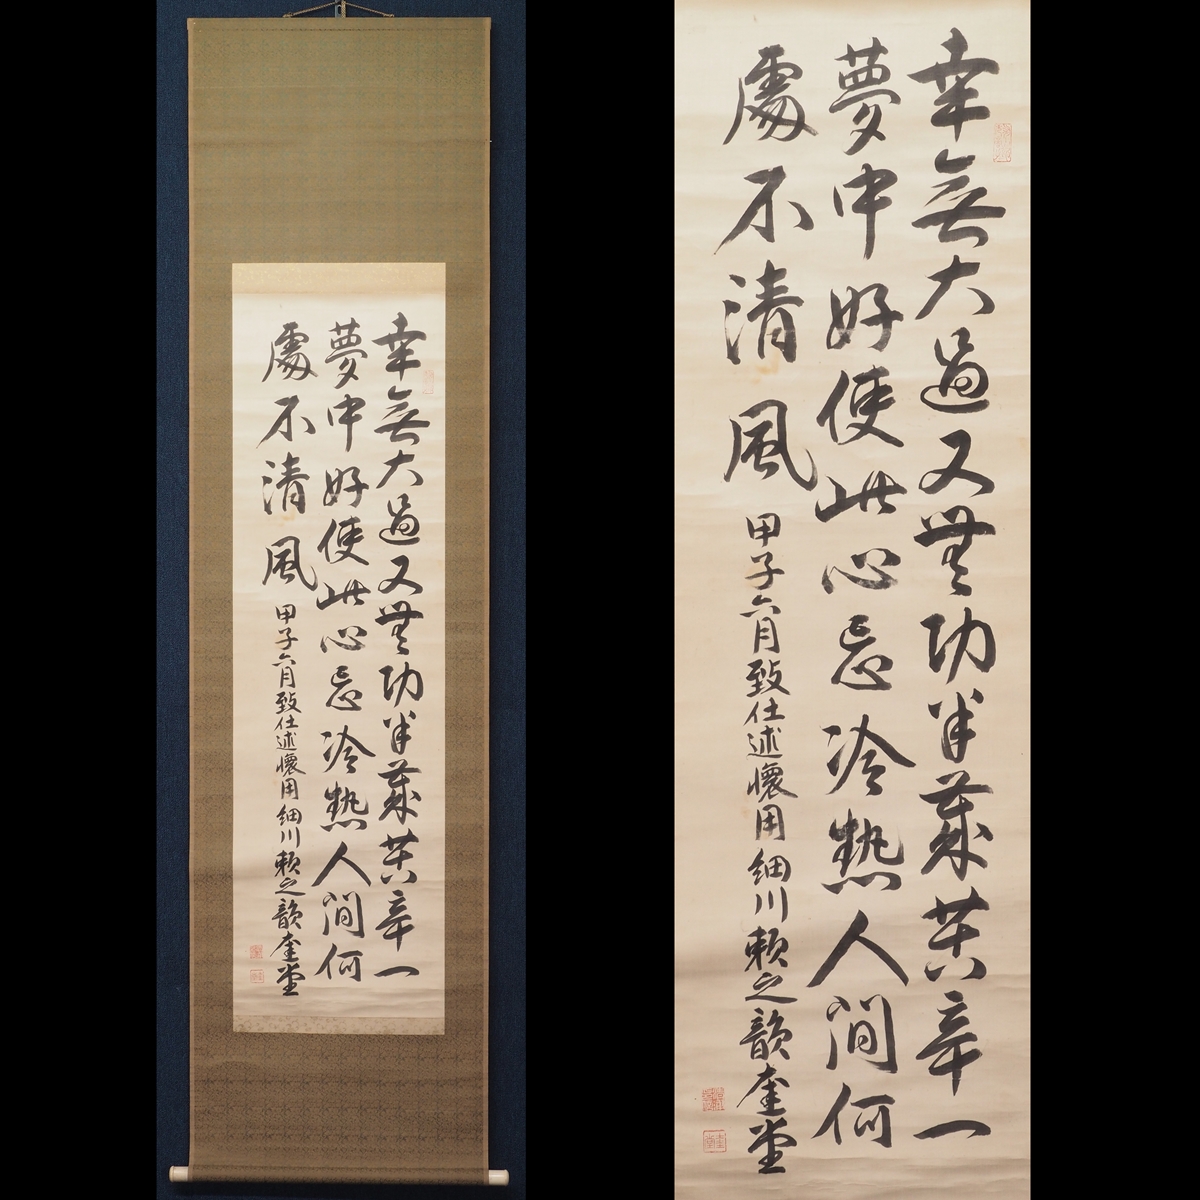 幸無大過又無功半歳苦辛一
夢中好使此心忘冷熱人間何
處不清風 甲子六月致仕述懷用細川頼之韻奎堂
幸無大過又無功半歳苦辛一
夢中好使此心忘冷熱人間何
處不清風 甲子六月致仕述懷用細川頼之韻奎堂